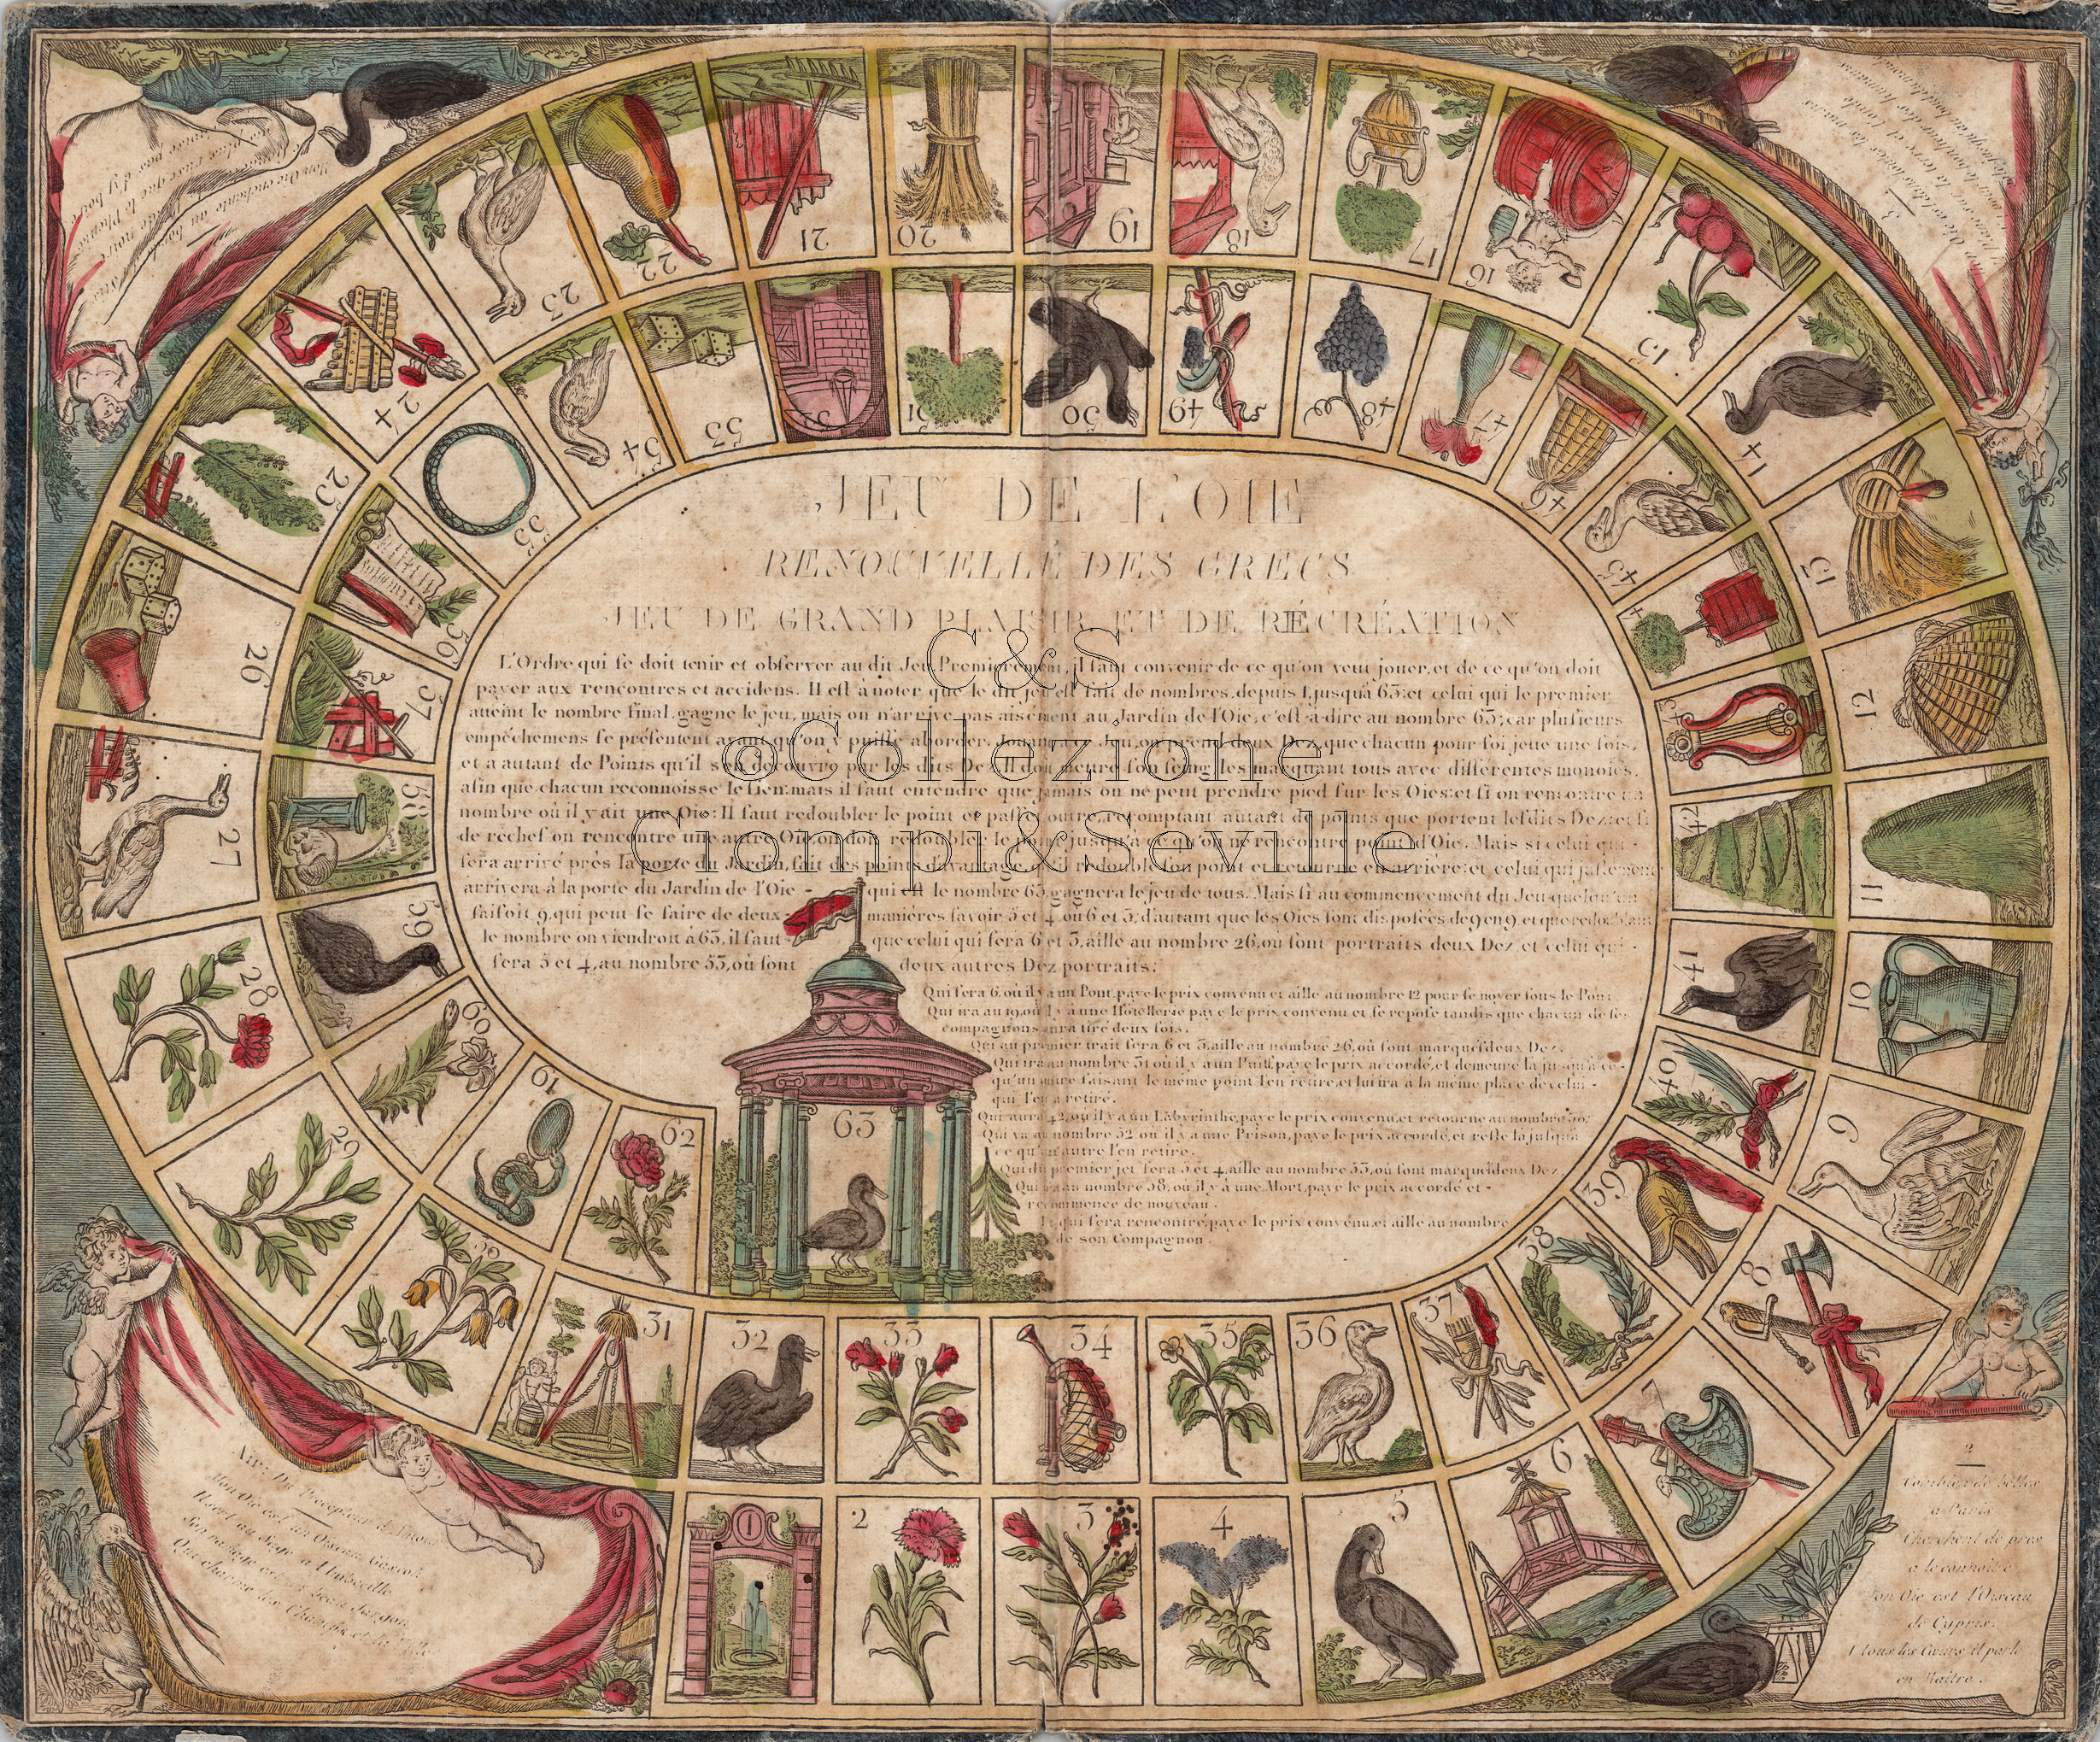 JEU DE L'OIE
RENOUVELLÉ DES GRECS
JEU DE GRAND PLAISIR ET DE RÉCRÉATION
L'Ordre qui se doit tenir et observer au dit Jeu, Premierement, il faut convenir de ce qu'on veut jouer, et de ce qu'on doit
payer aux rencontres et accidens. Il est à noter que le dit jeu est fait de nombres, depuis 1, jusqu'à 63: et celui qui le premier
atteint le nombre final, gagne le jeu, mais on n'arrive pas aisement au Jardin de l'Oie, c'est-à-dire au nombre 63; car plusieurs
empêchemens se présentent avant qu'on y puisse aborder. deux Dez que chacun pour soi jette une fois,
et a autant de Points qu'il s'en découvre par les dits Dez. Il doit mettre son seing, les marquant tous avec différentes monoies,
afin que chacun reconnoisse le sien: mais il faut entendre que jamais on ne peut prendre pied sur les Oies: et si on rencontre un
nombre où il y ait une Oie: Il faut redoubler le point et passer outre, recomptant autant de points que portent lesdits Dez: et si
de rechef on rencontre une autre Oie, on doit redoubler le point jusqu'à ce qu'on ne rencontre point d'Oie. Mais si celui qui
sera arrivé près la porte du Jardin, fait des points davantage, qu'il redouble son point et retourne en arrière: et celui qui justement
arrivera à la porte du Jardin de l'Oie - qui est le nombre 63, gagnera le jeu de tous. Mais si au commencement du Jeu quelqu'un
faisoit 9, qui peut se faire de deux manières savoir 5 et 4, où 6 et 3, d'autant que les Oies sont disposées de 9 en 9, et que redoublant
le nombre on viendroit à 63, il faut que celui qui fera 6 et 3, aille au nombre 26, où sont portraits deux Dez, et celui qui
fera 5 et 4, au nombre 53, où sont deux autres Dez portraits.
Qui fera 6, où il y a un Pont, paye le prix convenu et aille au nombre 12 pour se noyer sous le Pont
Qui ira au 19, où il y a une Hôtellerie paye le prix convenu et se repose tandis que chacun de ses
compagnons aura tiré deux fois.
Qui au premier trait fera 6 et 3, aille au nombre 26, où sont marqués deux Dez.
Qui ira au nombre 31 où il y a un Puits, paye le prix accordé, et demeure là jusqu'à ce
qu'un autre faisant le même point l'en retire, et lui ira à la même place de celui
qui l'en a retiré.
Qui aura 42, où il y a un Labyrinthe, paye le prix convenu, et retourne au nombre 30,
Qui va au nombre 52 où il y a une Prison, paye le prix accordé, et reste là jusqu'à
ce qu'un autre l'en retire.
Qui du premier jet fera 5 et 4, aille au nombre 53, où sont marqués deux Dez
Qui ira au nombre 58, où il y a une Mort, paye le prix accordé et
recommence de nouveau.
qui sera rencontré, paye le prix convenu, et aille au nombre
de son Compagnon.
C&S
©Collezione
Ciompi&Seville
1
2
3
4
5
6
8
9
10
11
12
13
14
15
16
17
18
19
20
21
22
23
24
25
26
27
28
29
30
31
32
33
34
35
36
37
38
39
40
41
42
43
45
46
47
48
49
50
51
52
53
54
55
56
57
58
59
60
61
62
63
Air: Du Precepteur d'Amour
Mon Oie est un Oiseau
2
Combien de belles
à Paris
Cherchent de près
à le connoitre
Mon Oie est l'Oiseau
de Cypris.
tous les Cœurs il parle
en Maître.
3